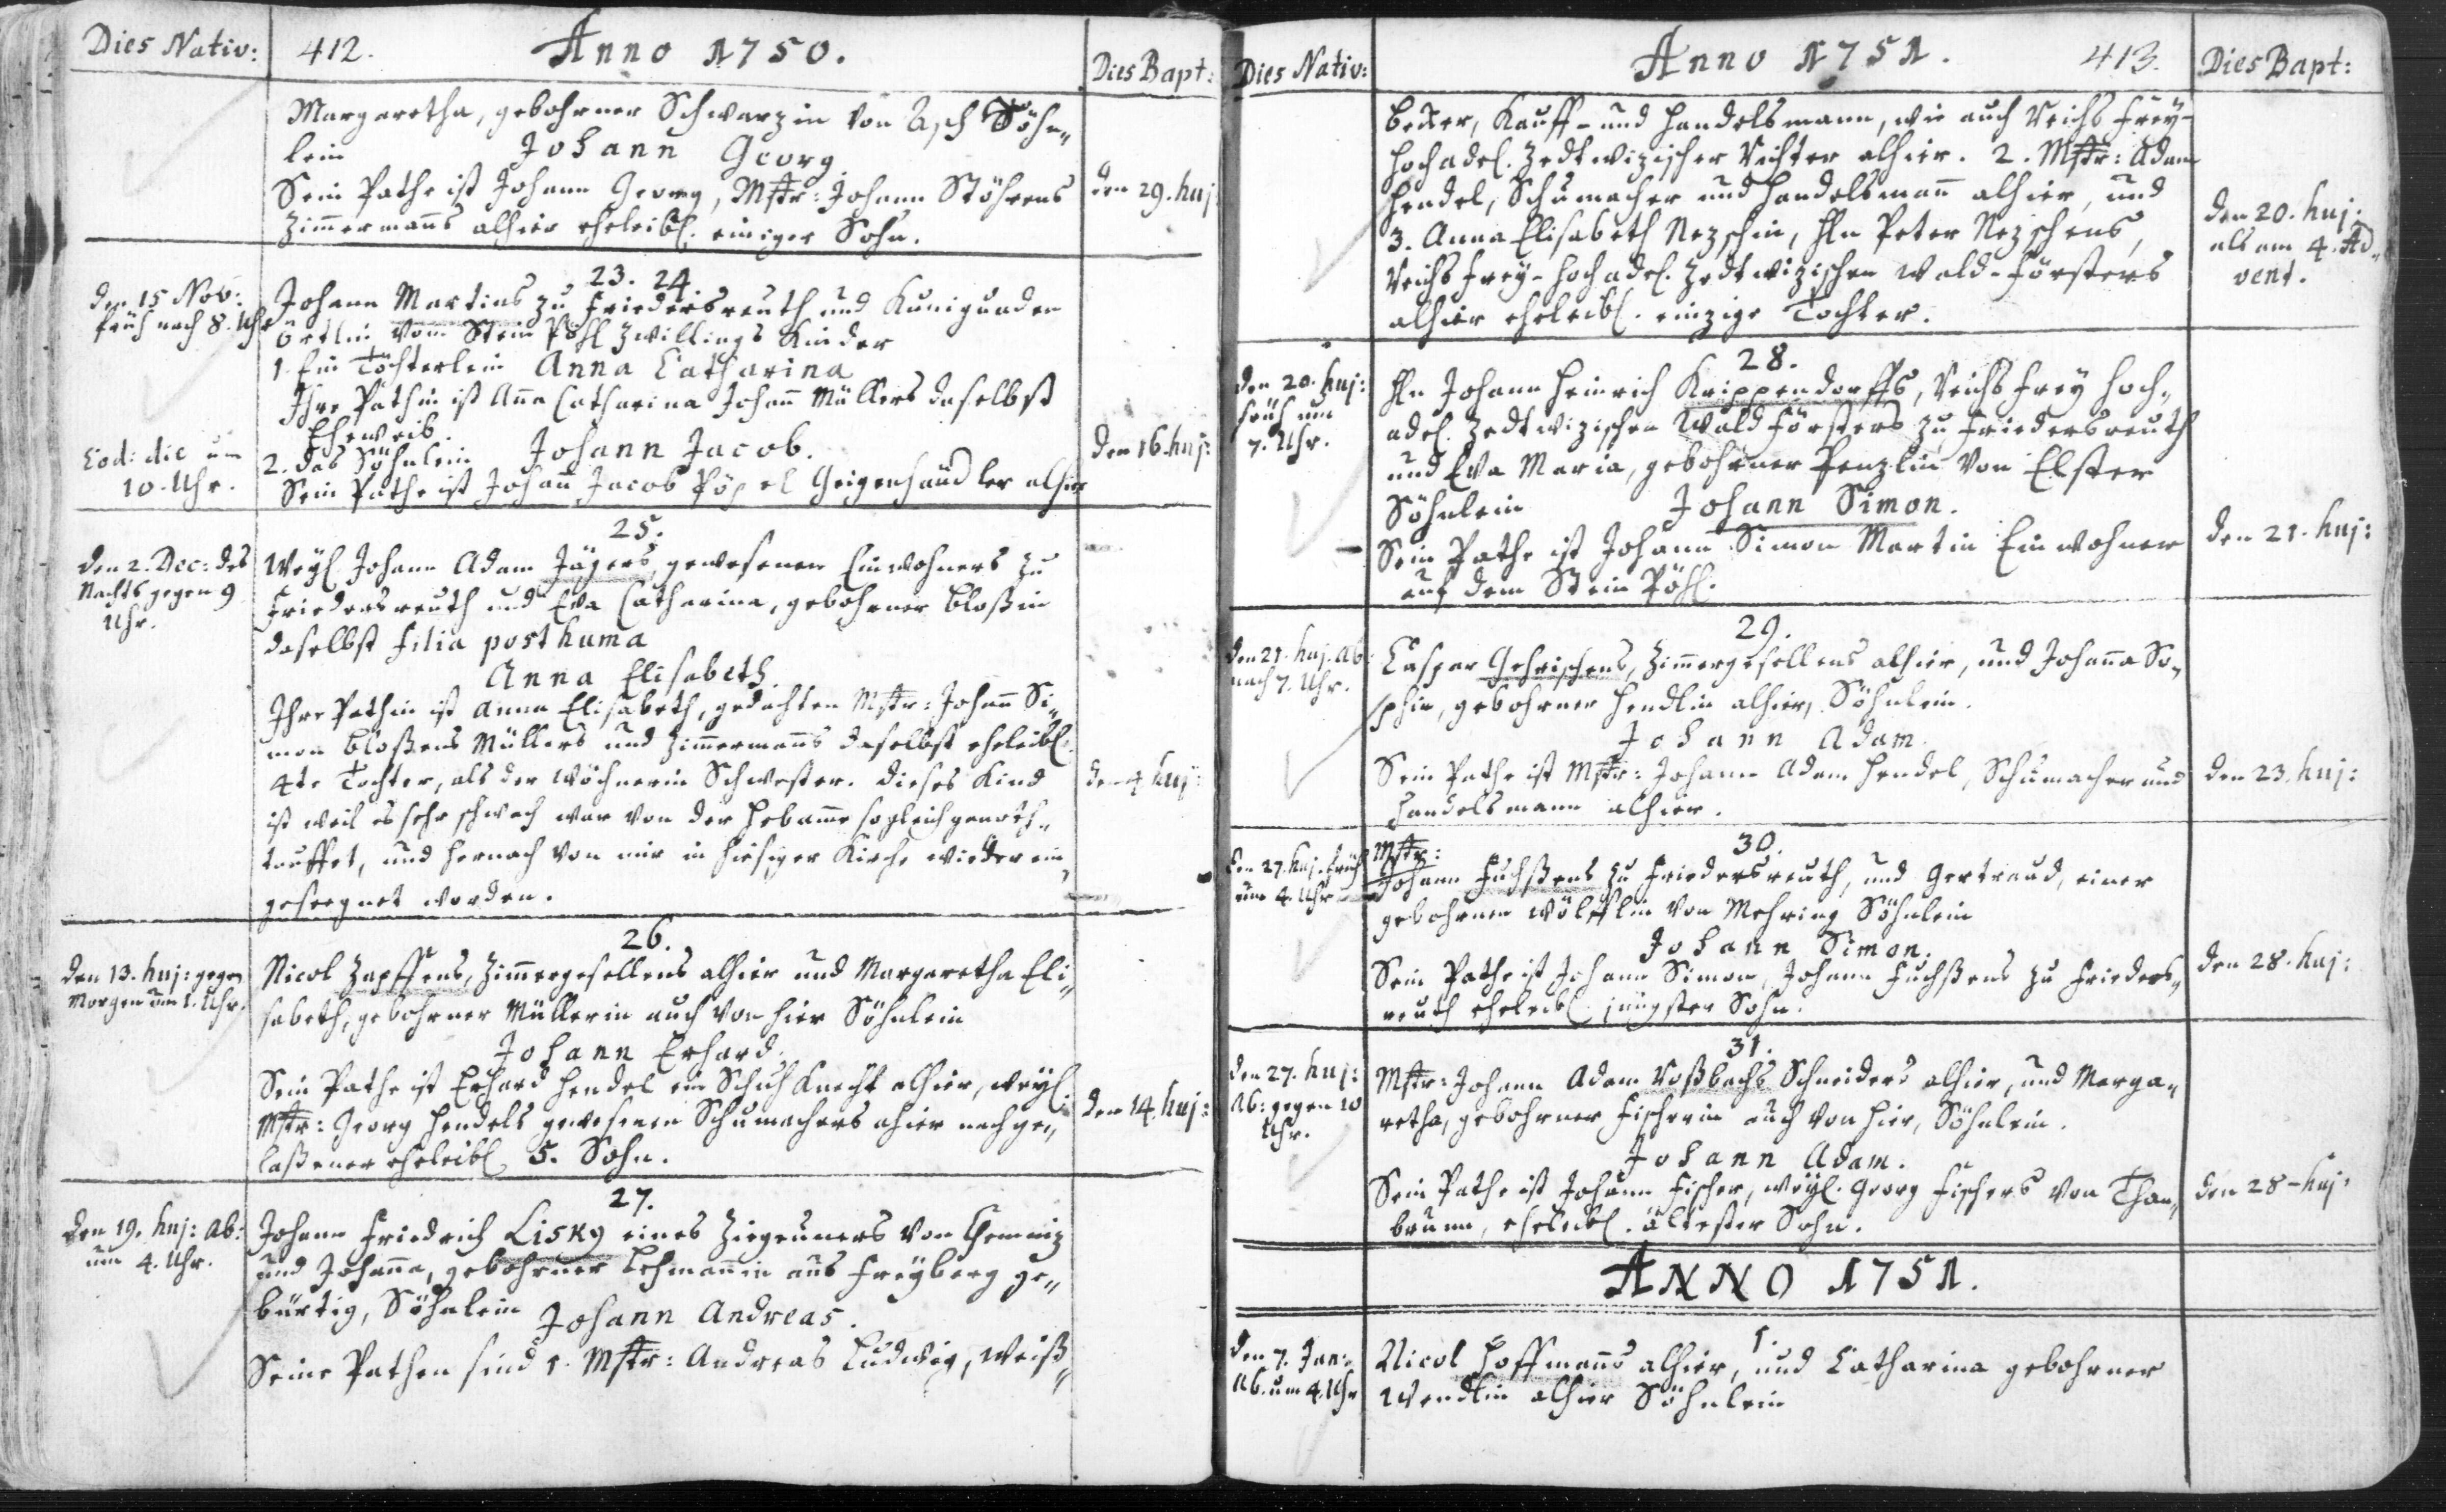 Dies Nativ: 412. Anno 1750. Dies Bapt:
Margaretha, gebohrner Schwarzin von Asch Söhn„
lein Johann Georg.
Sein Pathe ist Johann Georg, Mstr: Johann Stöhrens
Zimmermanns alhier eheleibl. einiger Sohn.
den 29. huj:
23. 24.
den 15 Nov:
früh nach 8. Uhr
Johann Martins zu Friedersreuth und Kunigunden
Örtlin vom Stein Pöhl Zwillings Kinder
1. Ein Töchterlein Anna Catharina
Ihre Pathin ist Anna Catharina Johann Müllers daselbst
Eheweib.
Eod: die um
10. Uhr.
2. das Söhnlein Johann Jacob.
Sein Pathe ist Johann Jacob Pöpel Geigenhändler alhier
den 16. huj:
25.
den 2. Dec: des
Nachts gegen 9
Uhr.
Weyl. Johann Adam Jägers, gewesenen Einwohners zu
Friedersreuth und Eva Catharina, gebohrner Bloßin
daselbst filia posthuma
Anna Elisabeth.
Ihre Pathin ist Anna Elisabeth, gedachten Mstr: Johann Si„
mon Bloßens Müllers und Zimmermanns daselbst eheleibl.
4te Tochter, als der Wöchnerin Schwester. Dieses Kind
ist weil es sehr schwach war von der Hebamme sogleich genoth„
tauffet, und hernach von mir in hiesiger Kirche wieder ein„
geseegnet worden.
den 4 huj:
26.
den 13. huj: gegen
Morgen um 1. Uhr.
Nicol Zapffens, Zimmergesellens alhier und Margaretha Eli„
sabeth, gebohrner Müllerin auch von hier Söhnlein
Johann Erhard.
Sein Pathe ist Erhard Hendel ein Schuh Knecht alhier, weyl.
Mstr: Georg Hendels gewesenen Schumachers ahier nachge„
laßener eheleibl. 5. Sohn.
den 14. huj:
27.
den 19. huj: Ab:
um 4. Uhr.
Johann Friedrich Lisky eines Ziegeuners von Chemniz
und Johanna, gebohrner Lehmannin aus Freyberg ge„
bürtig, Söhnlein Johann Andreas.
Seine Pathen sind 1. Mstr: Andreas Ludwig, Weiß„
Dies Nativ: Anno 1751. 413. Dies Bapt:
becker, Kauff- und Handelsmann, wie auch Reichs Frey-
Hochadel. Zedtwizischer Richter alhier. 2. Mstr: Adam
Hendel, Schumacher und Handelsmann alhier, und
3. Anna Elisabeth Nezschin, Hln Peter Nezschens,
Reichs Frey-Hochadel. Zedtwizischen Wald-Försters
alhier eheleibl. einzige Tochter.
den 20. huj:
als am 4. Ad„
vent.
28.
den 20. huj:
früh um
7. Uhr.
Hln Johann Heinrich Krippendorffs, Reichs Frey Hoch„
adel. Zedtwizischen Wald Försters zu Friedersreuth
und Eva Maria, gebohrner Penzlin von Elster
Söhnlein Johann Simon.
Sein Pathe ist Johann Simon Martin Einwohner
auf dem Stein Pöhl.
den 21. huj:
29.
den 21. huj. Ab:
nach 7. Uhr.
Caspar Gehrischens, Zimmergesellens alhier, und Johanna So„
phia, gebohrner Hendlin alhier, Söhnlein.
Johann Adam.
Sein Pathe ist Mstr: Johann Adam Hendel, Schumacher und
Handelsmann alhier.
den 23. huj:
30.
den 27. huj. früh
um 4. Uhr
Mstr:
Johann Fuchßens zu Friedersreuth, und Gertraud, einer
gebohrnen Wölfflin von Mehring Söhnlein
Johann Simon.
Sein Pathe ist Johann Simon, Johann Fuchßens zu Frieders„
reuth eheleibl. jüngster Sohn.
den 28. huj:
31.
den 27. huj:
Ab: gegen 10
Uhr.
Mstr: Johann Adam Roßbachs Schneiders alhier, und Marga„
retha, gebohrner Fischerin auch von hier, Söhnlein.
Johann Adam.
Sein Pathe ist Johann Fischer, weyl. Georg Fischers von Than„
brunn, eheleibl. ältester Sohn.
den 28 huj:
ANNO 1751.
1.
den 7. Jan:
Ab. um 4. Uhr
Nicol Hoffmanns alhier, und Catharina gebohrner
Wendlin alhier Söhnlein